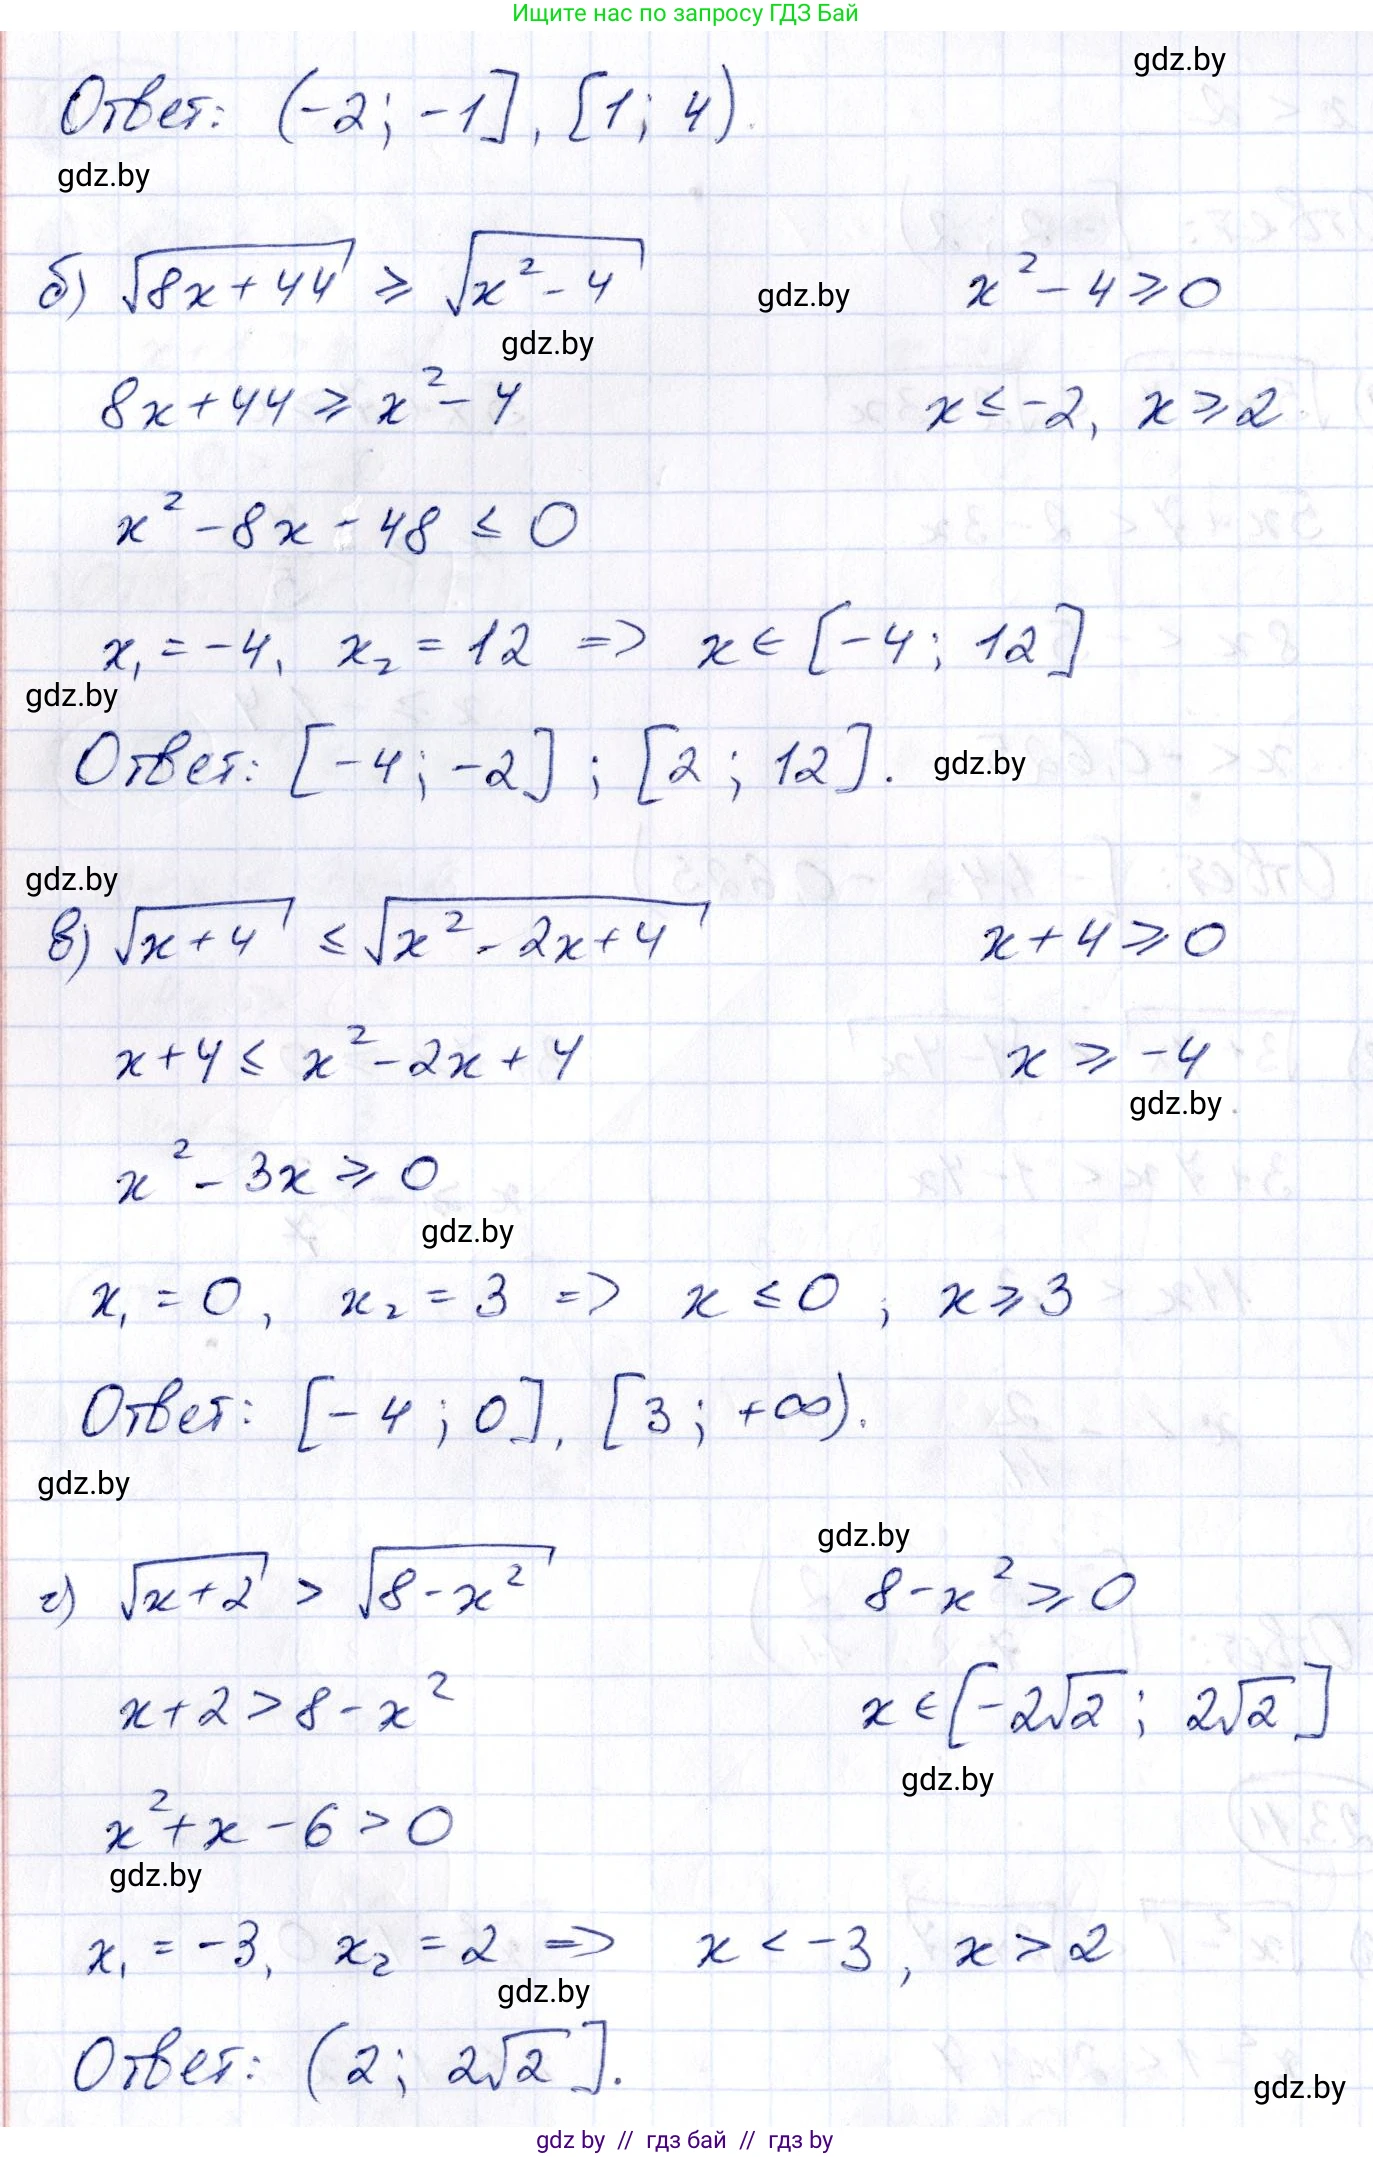 Ищите нас по запросу ГДЗ Бай
gdz.by
Ответ: (-2; -1], [1; 4).
gdz.by
б) √(8x+44) ⩾ √(x²-4) gdz.by x²-4⩾0
gdz.by
8x+44 ⩾ x²-4 x≤-2, x⩾2
x²-8x-48 ≤ 0
x₁=-4, x₂=12 => x∈[-4; 12]
gdz.by
Ответ: [-4; -2]; [2; 12]. gdz.by
gdz.by
в) √(x+4) ≤ √(x²-2x+4) x+4⩾0
x+4≤ x²-2x+4 x ⩾ -4
gdz.by
x²-3x⩾0
gdz.by
x₁=0, x₂=3 => x≤0; x⩾3
Ответ: [-4; 0], [3; +∞).
gdz.by
gdz.by
г) √(x+2) > √(8-x²) 8-x²⩾0
x+2>8-x² x∈[-2√2; 2√2]
gdz.by
x²+x-6>0
gdz.by
x₁=-3, x₂=2 => x<-3, x>2
gdz.by
Ответ: (2; 2√2].
gdz.by
gdz by // гдз бай // гдз by